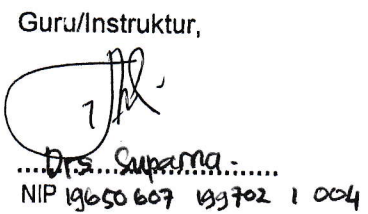 Guru/Instruktur,
Drs Suparna.
NIP 19650607 199702 1 004